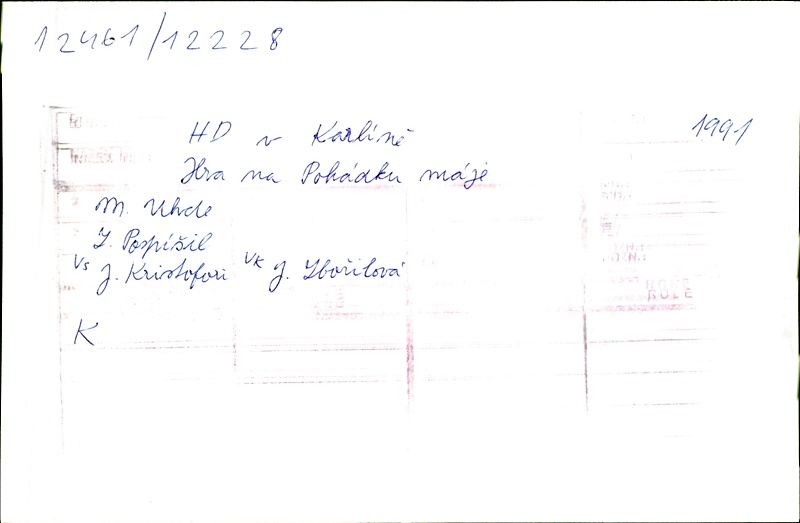 12461/12228
HD v Karlíně 1991
Hra na Pohádku máje
M. Uhde
Z. Pospíšil
Vs J. Kristofori Vk J. Zbořilová
K
ROLE